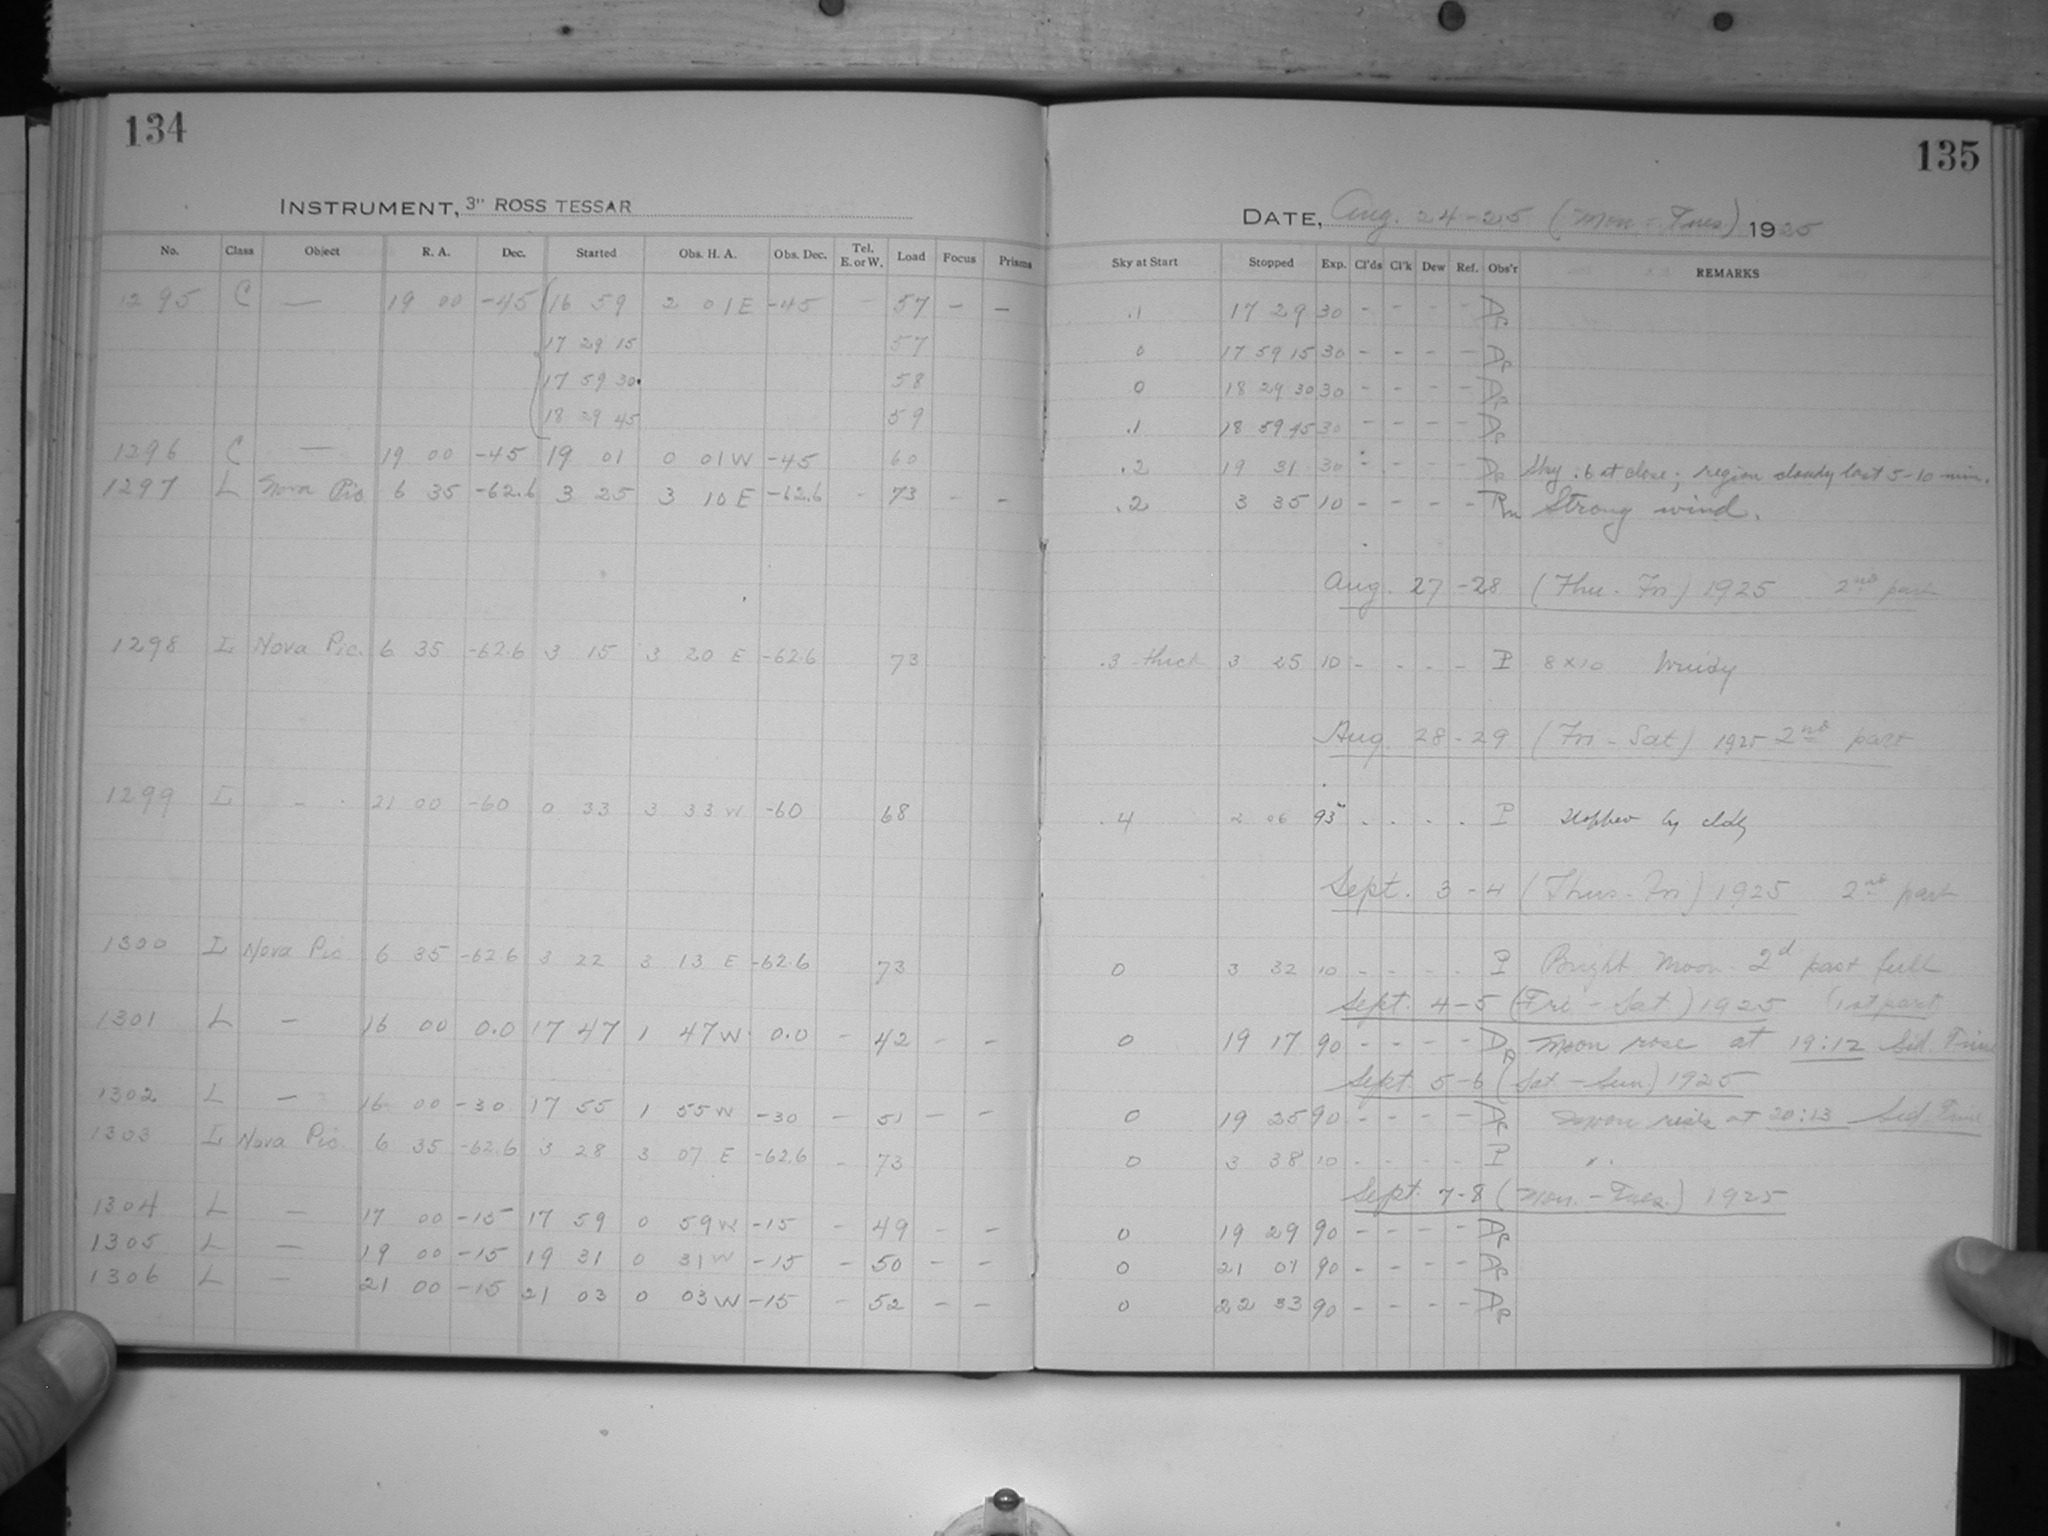 134
INSTRUMENT, 3" ROSS TESSAR
No. Class Object R. A. Dec. Started Obs. H. A. Obs. Dec. Tel. E. or W. Load Focus Prisms
1295 C — 19 00 -45 16 59 2 01 E -45 - 57 - -
17 29 15 57
17 59 30 58
18 29 45 59
1296 C — 19 00 -45 19 01 0 01 W -45 60
1297 L Nova Pic 6 35 -62.6 3 25 3 10 E -62.6 - 73 - -
1298 L Nova Pic. 6 35 -62.6 3 15 3 20 E -62.6 73
1299 L - 21 00 -60 0 33 3 33 W -60 68
1300 L Nova Pic 6 35 -62.6 3 22 3 13 E -62.6 73
1301 L - 16 00 0.0 17 47 1 47 W 0.0 - 42 - -
1302 L - 16 00 -30 17 55 1 55 W -30 - 51 - -
1303 L Nova Pic 6 35 -62.6 3 28 3 07 E -62.6 - 73
1304 L - 17 00 -15 17 59 0 59 W -15 - 49 - -
1305 L - 19 00 -15 19 31 0 31 W -15 - 50 - -
1306 L - 21 00 -15 21 03 0 03 W -15 - 52 - -
135
DATE, Aug. 24-25 (Mon - Tues) 1925
Sky at Start Stopped Exp. Cl'ds Cl'k Dew Ref. Obs'r REMARKS
.1 17 29 30 - - - -
0 17 59 15 30 - - - -
0 18 29 30 30 - - - -
.1 18 59 45 30 - - - -
.2 19 31 30 - - - - Sky .6 at close; region cloudy last 5-10 min.
.2 3 35 10 - - - - Rm Strong wind.
Aug. 27-28 (Thu - Fri) 1925 2nd part
.3 thick 3 25 10 - - - - P 8x10 Windy
Aug. 28-29 (Fri - Sat) 1925 2nd part
.4 2 06 93 - - - - P Stopped by cldy
Sept. 3-4 (Thus - Fri) 1925 2nd part
0 3 32 10 - - - - P Bright Moon. 2d past full
Sept. 4-5 (Fri - Sat.) 1925 (1st part)
0 19 17 90 - - - - Moon rose at 19:12 Sid. Time
Sept. 5-6 (Sat. - Sun.) 1925
0 19 25 90 - - - - Moon rise at 20:13 Sid. Time
0 3 38 10 - - - - P "
Sept. 7-8 (Mon. - Tues.) 1925
0 19 29 90 - - - -
0 21 01 90 - - - -
0 22 33 90 - - - -